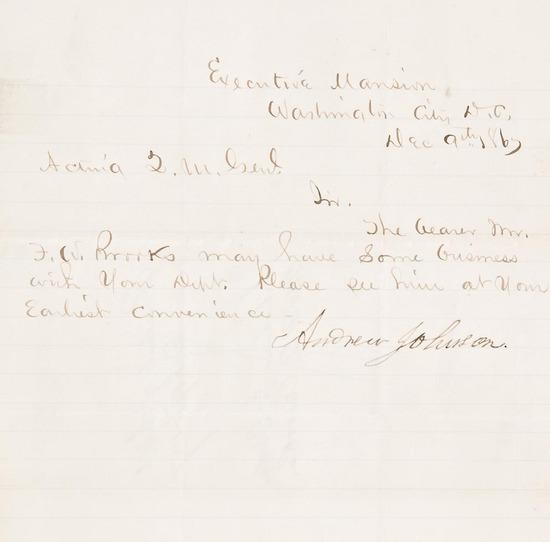 Executive Mansion
Washington City D.C.
Dec 9th 1867
Acting Q. M. Genl.
Sir.
The bearer Mr.
F. W. Brooks may have some business
with Your Dept. Please see him at Your
Earliest convenience
Andrew Johnson.